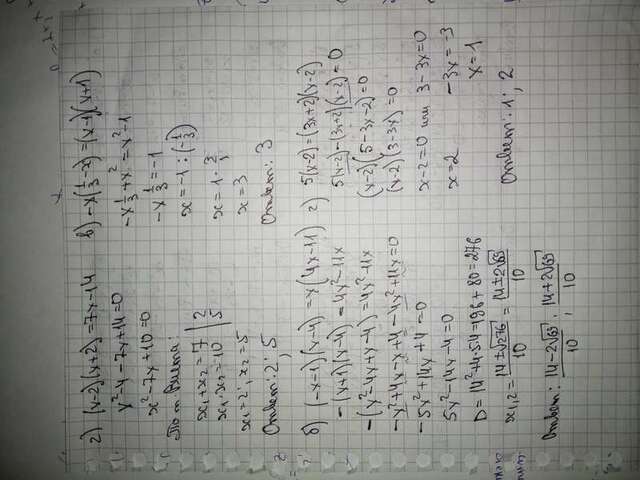 2) (x-2)(x+2)=7x-14
x²-4-7x+14=0
x²-7x+10=0
По т. Виета:
x₁+x₂=7 | 2
x₁·x₂=10 | 5
x₁=2, x₂=5
Ответ: 2; 5
б) (-x-1)(x-4)=x(4x-11)
-(x+1)(x-4)=4x²-11x
-(x²-4x+x-4)=4x²-11x
-x²+4x-x+4-4x²+11x=0
-5x²+14x+4=0
5x²-14x-4=0
D=14²+4·5·4=196+80=276
x₁,₂=14±√276/10=14±2√69/10
Ответ: 14-2√69/10; 14+2√69/10
в) -x(1/3-x)=(x-1)(x+1)
-x1/3+x²=x²-1
-x1/3=-1
x=-1:(-1/3)
x=1·3/1
x=3
Ответ: 3
г) 5(x-2)=(3x+2)(x-2)
5(x-2)-(3x+2)(x-2)=0
(x-2)(5-3x-2)=0
(x-2)(3-3x)=0
x-2=0 или 3-3x=0
x=2 -3x=-3
x=1
Ответ: 1; 2